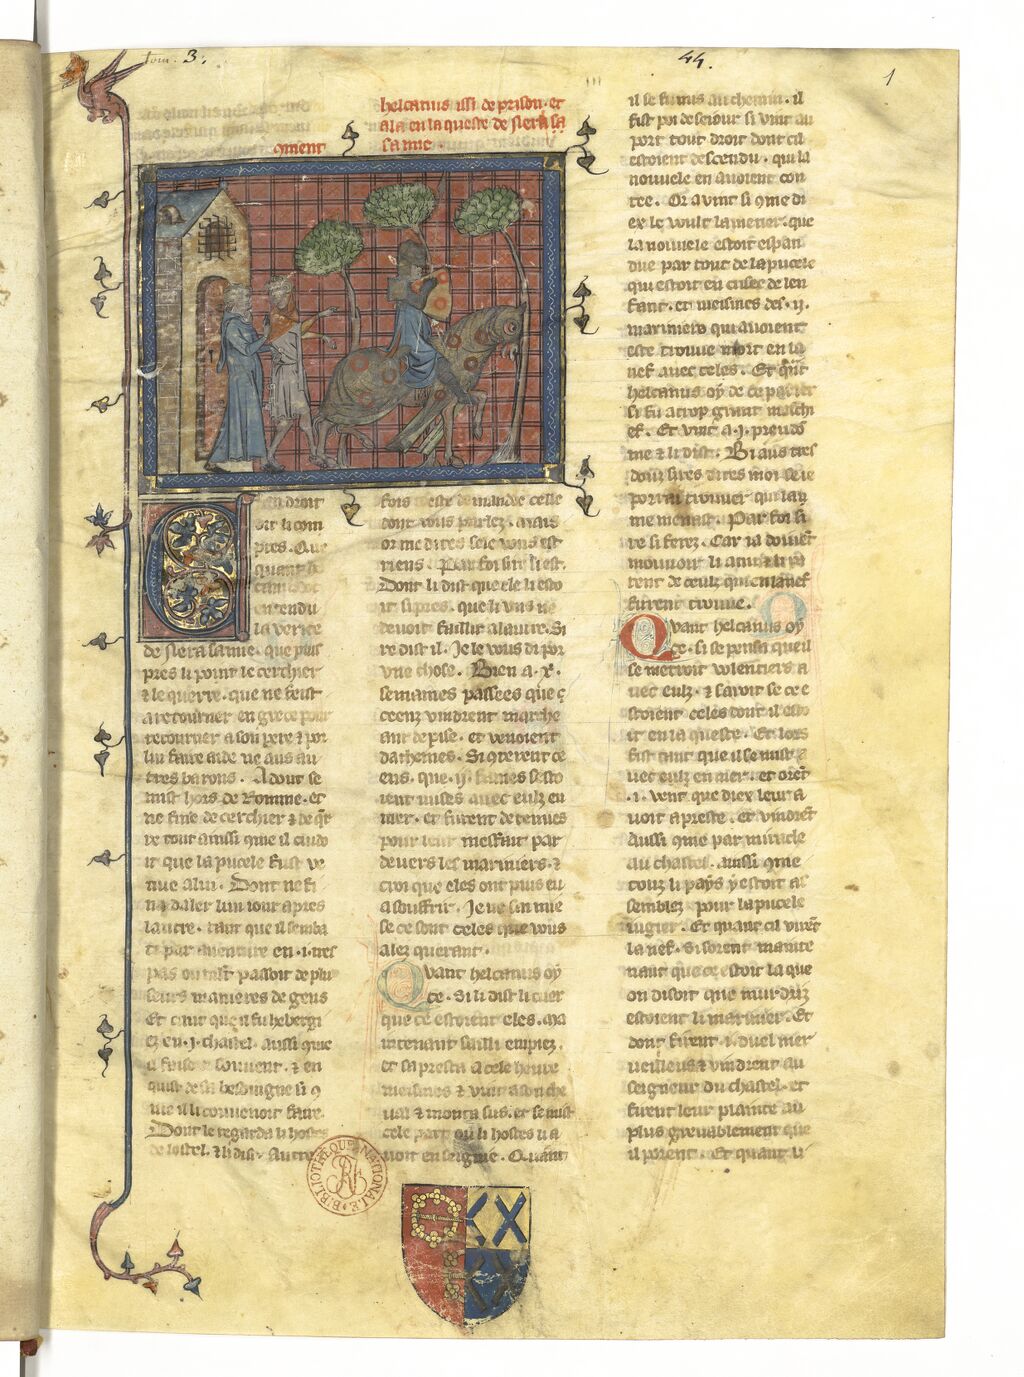 tom. 3.
44.
1
oment
helcanus issi de prison. et
ala en la queste de
sa mie.
en droit
dit li con
pres. Que
quant
entendu
la verite
de sa mie. que puis
pres li point le cerchier
⁊ le querre. que ne feist
a retourner en grece pour
retourner a son pere ⁊ por
lui faire aide ne aus au
tres barons. Adont se
mist hors de Romme. et
ne fine de cerchier ⁊ de
re tout aussi
ir que la pucele fust ve
nue a lui. Dont ne fi
na daler lun iour apres
lautre. tant que il semba
ti par auenture en .i. tres
pas ou passoit de plu
seurs manieres de gens
Et tant que il fu hebergi
ez en .j. chastel. aussi
il feist souuent. ⁊ en
quist de sa besoingne si
me il li conuenoit faire.
Dont le regarda li hostes
de lostel. ⁊ li dist.
fois este demande celle
dont vous parlez. mais
or me dites se ie vous est
riens. Par foi sire li est.
Dont li dist que ele li esto
it si pres. que li vns ne
deuoit faillir a lautre. Si
re dist il. Je le vous di por
vne chose. Bien a .x.
semaines passees que
ceenz vindrent marche
ant de pise. et venoient
dathenes. Si
ens. que .ij. fames sesto
ient mises auec eulz en
mer. et furent detenues
pour leur messait par
deuers les mariniers. ⁊
croi que eles ont puis eu
a souffrir. Je ne sai mie
se ce sont celes que vous
alez querant.
Quant helcanus oy
ce. Si li dist li cuer
que ce estoient eles. ma
intenant sailli empiez.
et sapresta a cele heure
meismes ⁊ vint a son che
ual ⁊ monta sus. et se mist
cele part ou li hostes li a
uoit enseigne. Quant
il se fu mis au chemin. il
fist poi de seiour si vint au
port tout droit dont cil
estoient descendu. qui la
nouuele en auoient con
tee. Or auint si di
ex le vuolt la mener. que
la nouuele estoit espan
due par tout de la pucele
qui estoit en de len
fant. et meismes des .ij.
mariniers qui auoient
este trouue mort en la
nef auec celes. Et
helcanus oy de ce parler
si fu a trop grant meschi
ef. Et vint a .j. preudo
me ⁊ li dist. Biaus tres
douz sires dites moi se ie
porrai trouuer qui la y
me menast. Par foi si
re si ferez. Car ia doiuent
mouuoir li ami ⁊ li pa
rent de ceulz qui en la nef
furent trouue.
Quant helcanus oy
ce. si se pensa que il
se metroit volentiers a
uec eulz. ⁊ sauroit se ce e
stoient celes dont il esto
it en la queste. Et lors
fist tant que il se mist a
uec eulz en mer. et orent
.i. vent que diex leur a
uoit apreste. et vindrent
aussi par miracle
au chastel. aussi
touz li pays y estoit as
semblez pour la pucele
iugier. Et quant cil virent
la nef. si sorent mainte
nant que ce estoit la que
on disoit que murdriz
estoient li marinier. Et
dont firent .i. duel mer
ueilleus ⁊ vindrent au
seigneur du chastel. et
firent leur plainte au
plus greuablement que
il porent. Et quant li
BIBLIOTHEQUE NATIONALE
RF